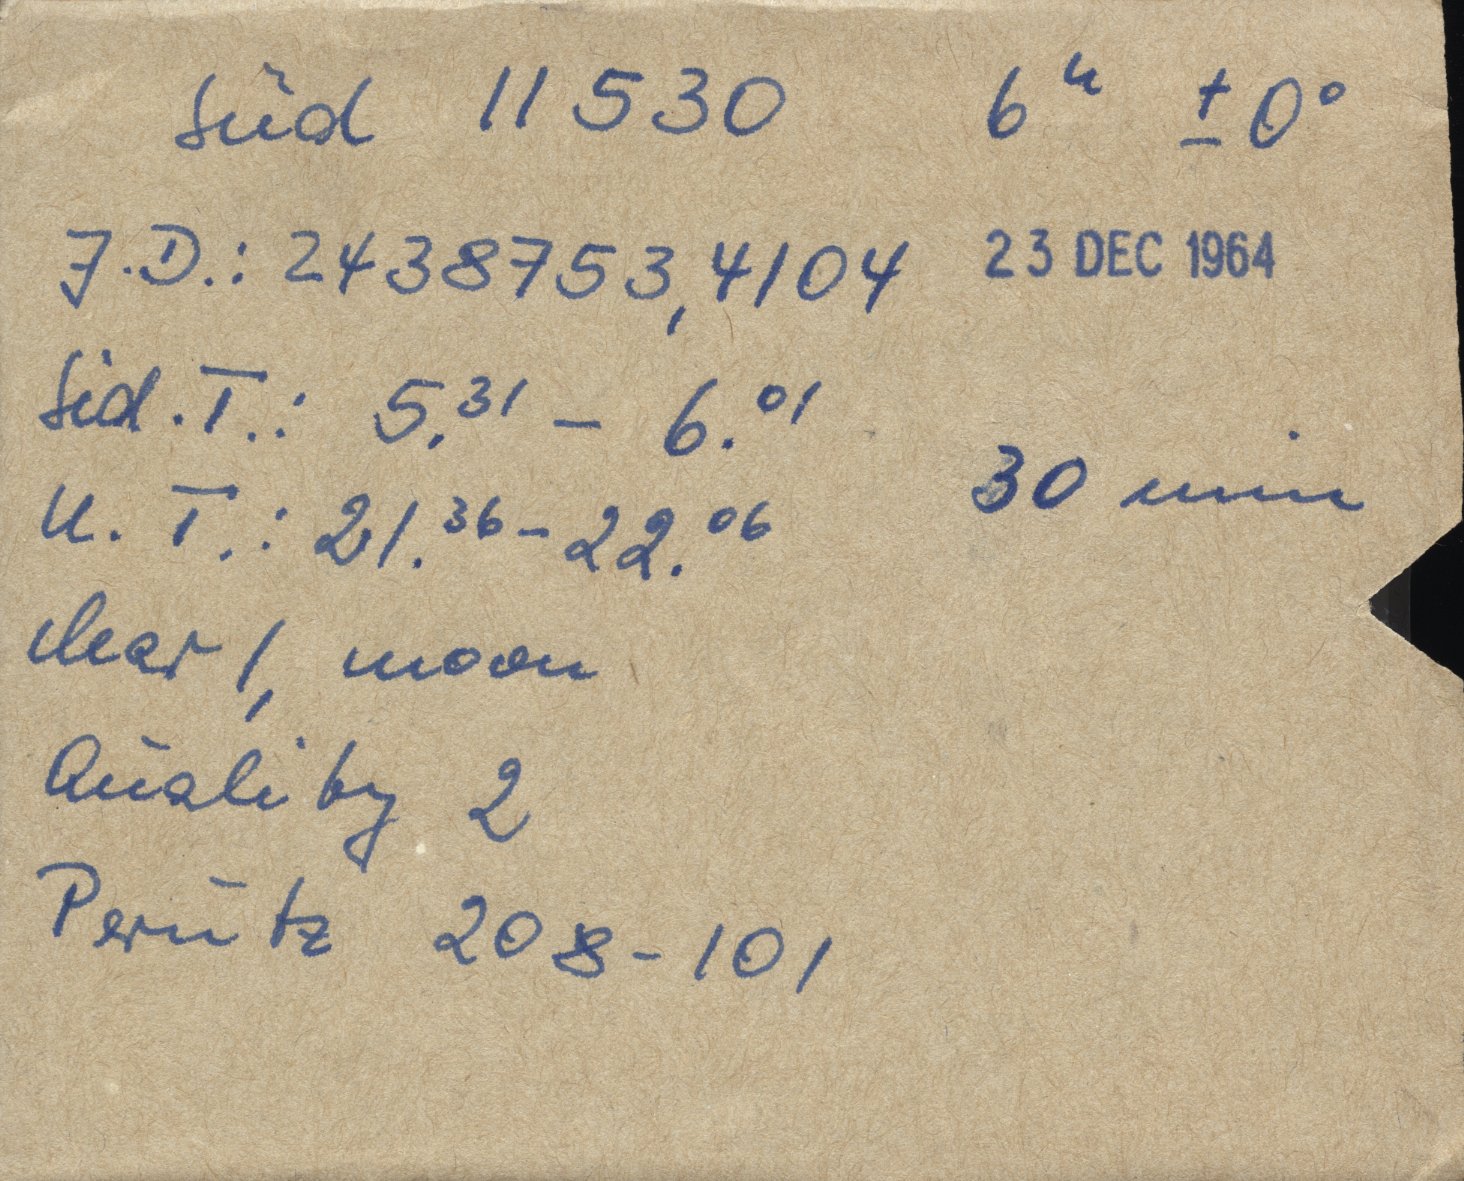 Süd 11530 6ʰ ±0°
J.D.: 2438753,4104 23 DEC 1964
Sid.T.: 5.³¹ – 6.⁰¹
30 min
U.T.: 21.³⁶ – 22.⁰⁶
clear 1, moon
Quality 2
Perutz 208-101